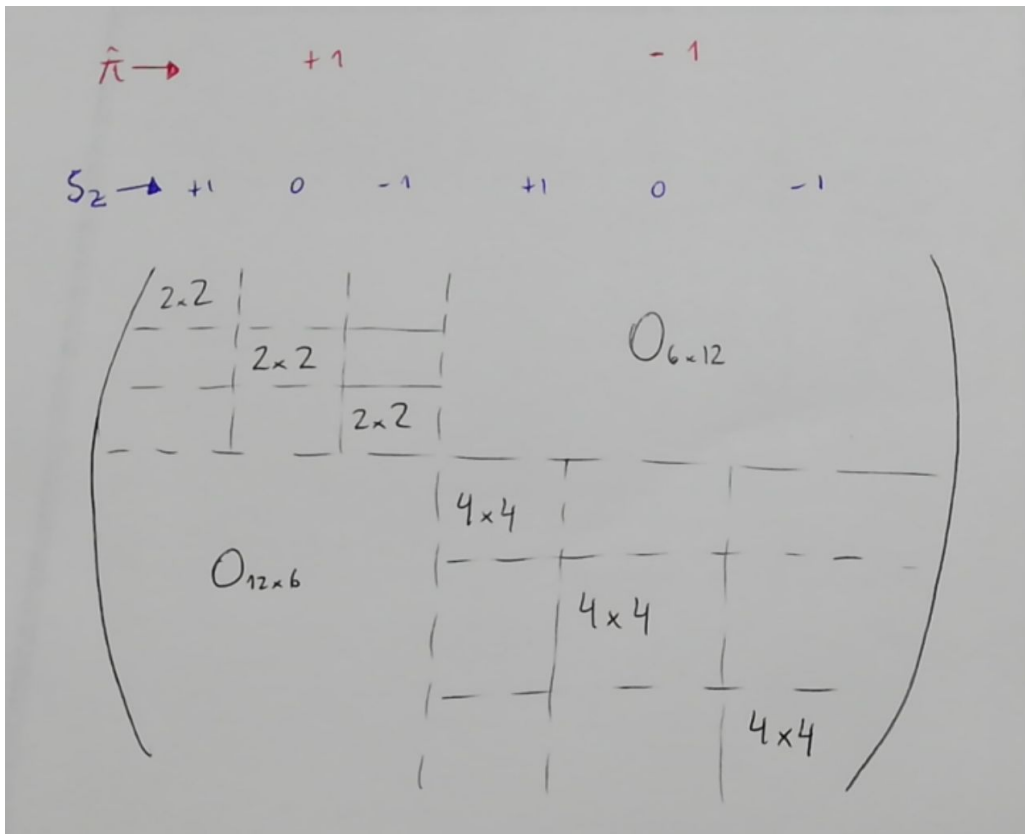 π̂ → +1 - 1
S₂ → +1 0 - 1 +1 0 - 1
2×2
2×2 O₆ₓ₁₂
2×2
4×4
O₁₂ₓ₆
4×4
4×4